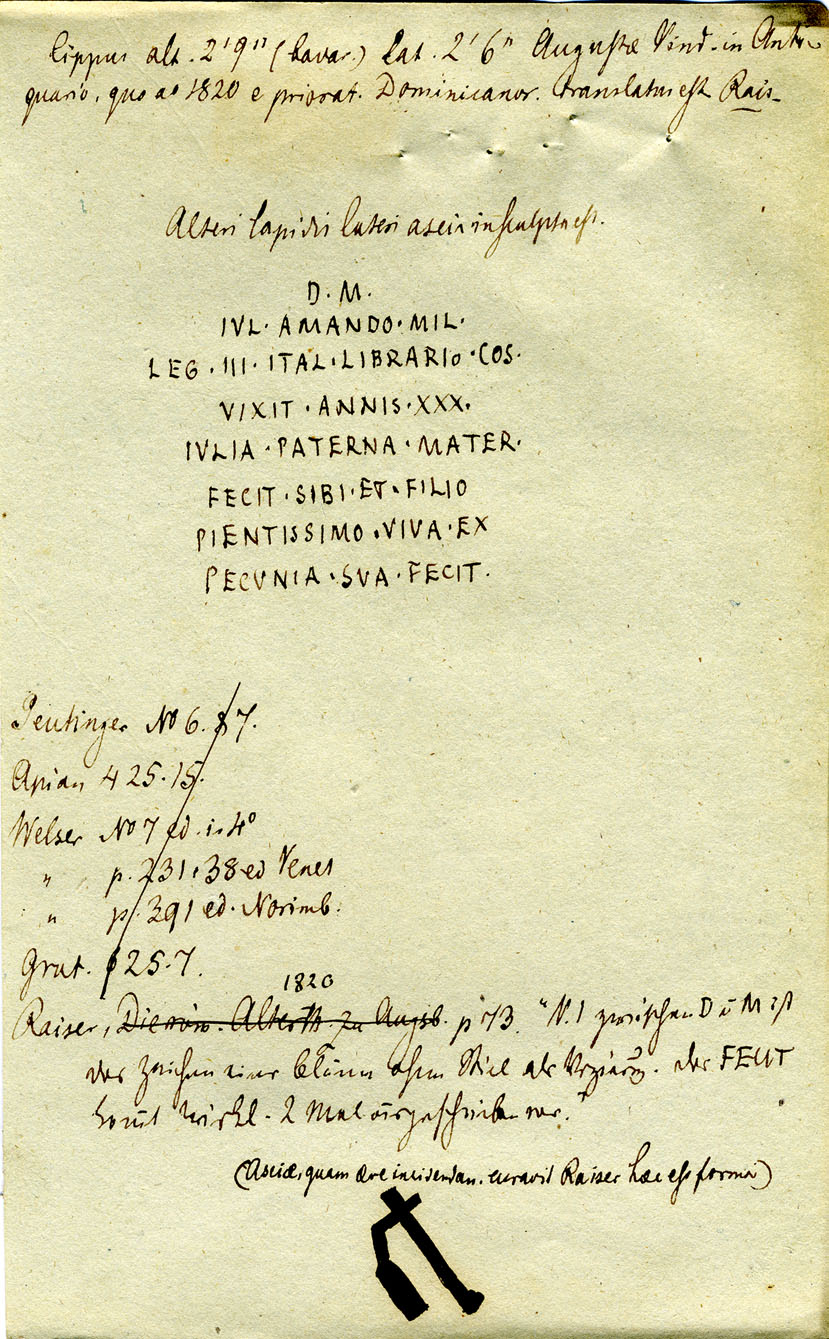 Cippus alt. 2'9" (bavar.) lat. 2'6" Augustæ Vind. in Anti-
quario, quo aº 1820 e priorat. Dominicanor. translatus est Rais.
Alteri lapidis lateri ascia insculpta est.
D. M.
IVL. AMANDO. MIL.
LEG. III. ITAL. LIBRARIO. COS.
VIXIT. ANNIS. XXX.
IVLIA. PATERNA. MATER.
FECIT. SIBI. ET. FILIO
PIENTISSIMO. VIVA. EX
PECVNIA. SVA. FECIT.
Peutinger Nº 6. 7.
Apian 425.15.
Welser Nº 7 ed. i. 4º
" p. 231. 38 ed Venet
" p. 391 ed. Norimb.
Grut. 525.7.
1820
Raiser, Die röm. Alterth. zu Augsb. p 73. "N.1 zwischen D u M ist
das Zeichen einer Blume ohne Stiel als Verzierung. das FECIT
komt wirkl. 2 Mal vor."
(Asciæ, quam ære incidendam curavit Raiser hæc est forma)